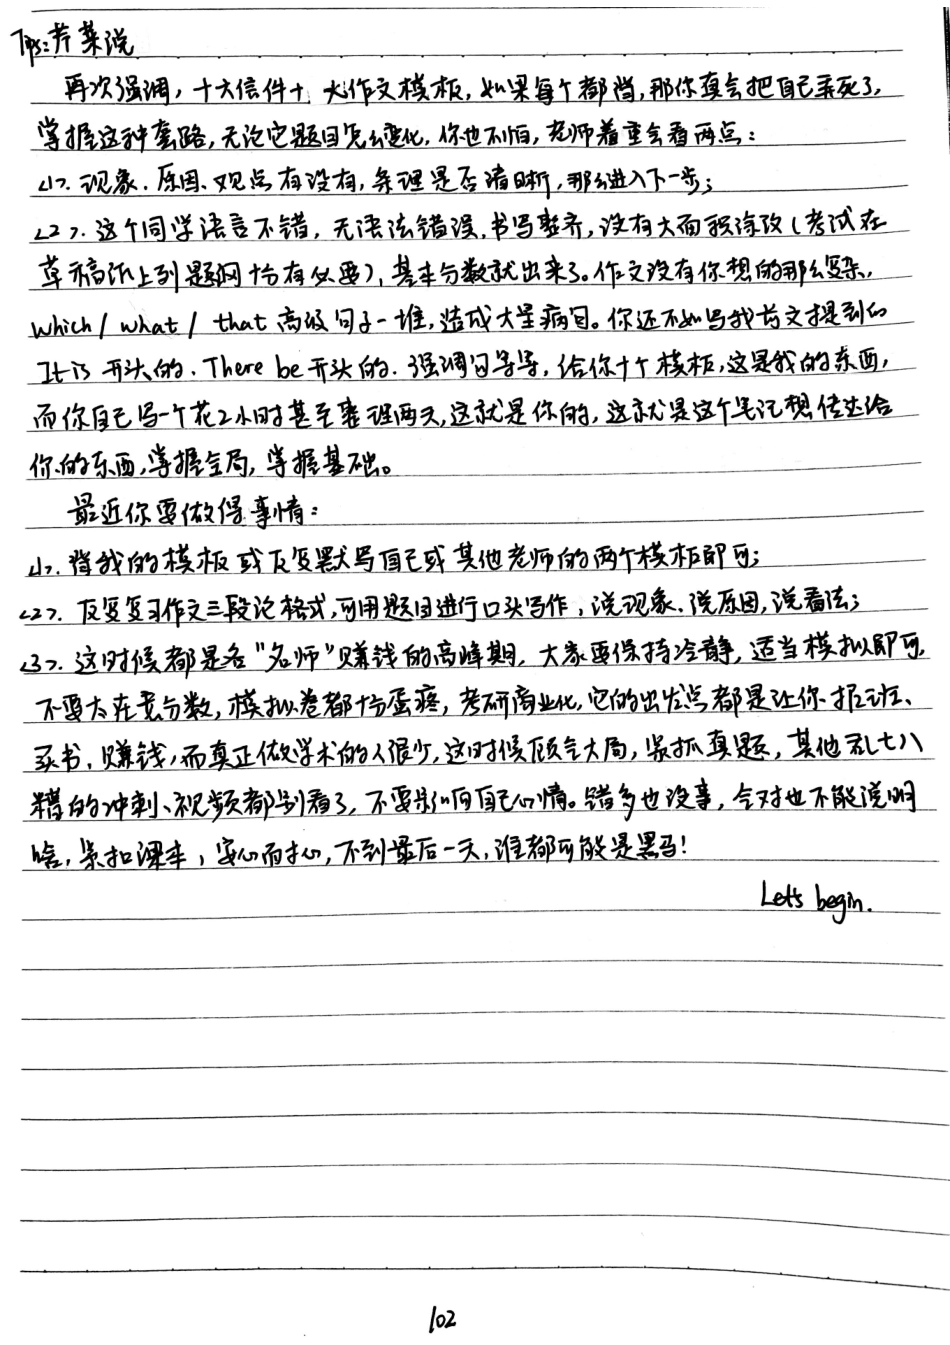 Tips:芹菜说
再次强调，十六信件+大作文模板，如果每个都背，那你真会把自己累死了，
掌握这种套路，无论它题目怎么变化，你也不怕，老师着重会看两点：
<1>.现象、原因、观点有没有，条理是否清晰，那么进入下一步；
<2>.这个同学语言不错，无语法错误，书写整齐，没有大面积涂改（考试在
草稿纸上列题纲十分有必要），基本分数就出来了。作文没有你想的那么复杂，
which / what / that 高级句子一堆，造成大量病句。你还不如写我前文提到的
It is 开头的、There be 开头的、强调句等等，给你十个模板，这是我的东西，
而你自己写一个花2小时甚至整理两天，这就是你的，这就是这个笔记想传达给
你的东西，掌握全局，掌握基础。
最近你要做得事情：
<1>.背我的模板或反复默写自己或其他老师的两个模板即可；
<2>.反复复习作文三段论格式，可用题目进行口头写作，说现象、说原因，说看法；
<3>.这时候都是各“名师”赚钱的高峰期，大家要保持冷静，适当模拟即可，
不要太在意分数，模拟卷都十分蛋疼，考研商业化，它的出发点都是让你报班、
买书、赚钱，而真正做学术的人很少，这时候顾全大局，紧抓真题，其他乱七八
糟的冲刺、视频都别看了，不要影响自己心情。错多也没事，全对也不能说明
啥，紧扣课本，安心而求心，不到最后一天，谁都可能是黑马！
Let's begin.
102